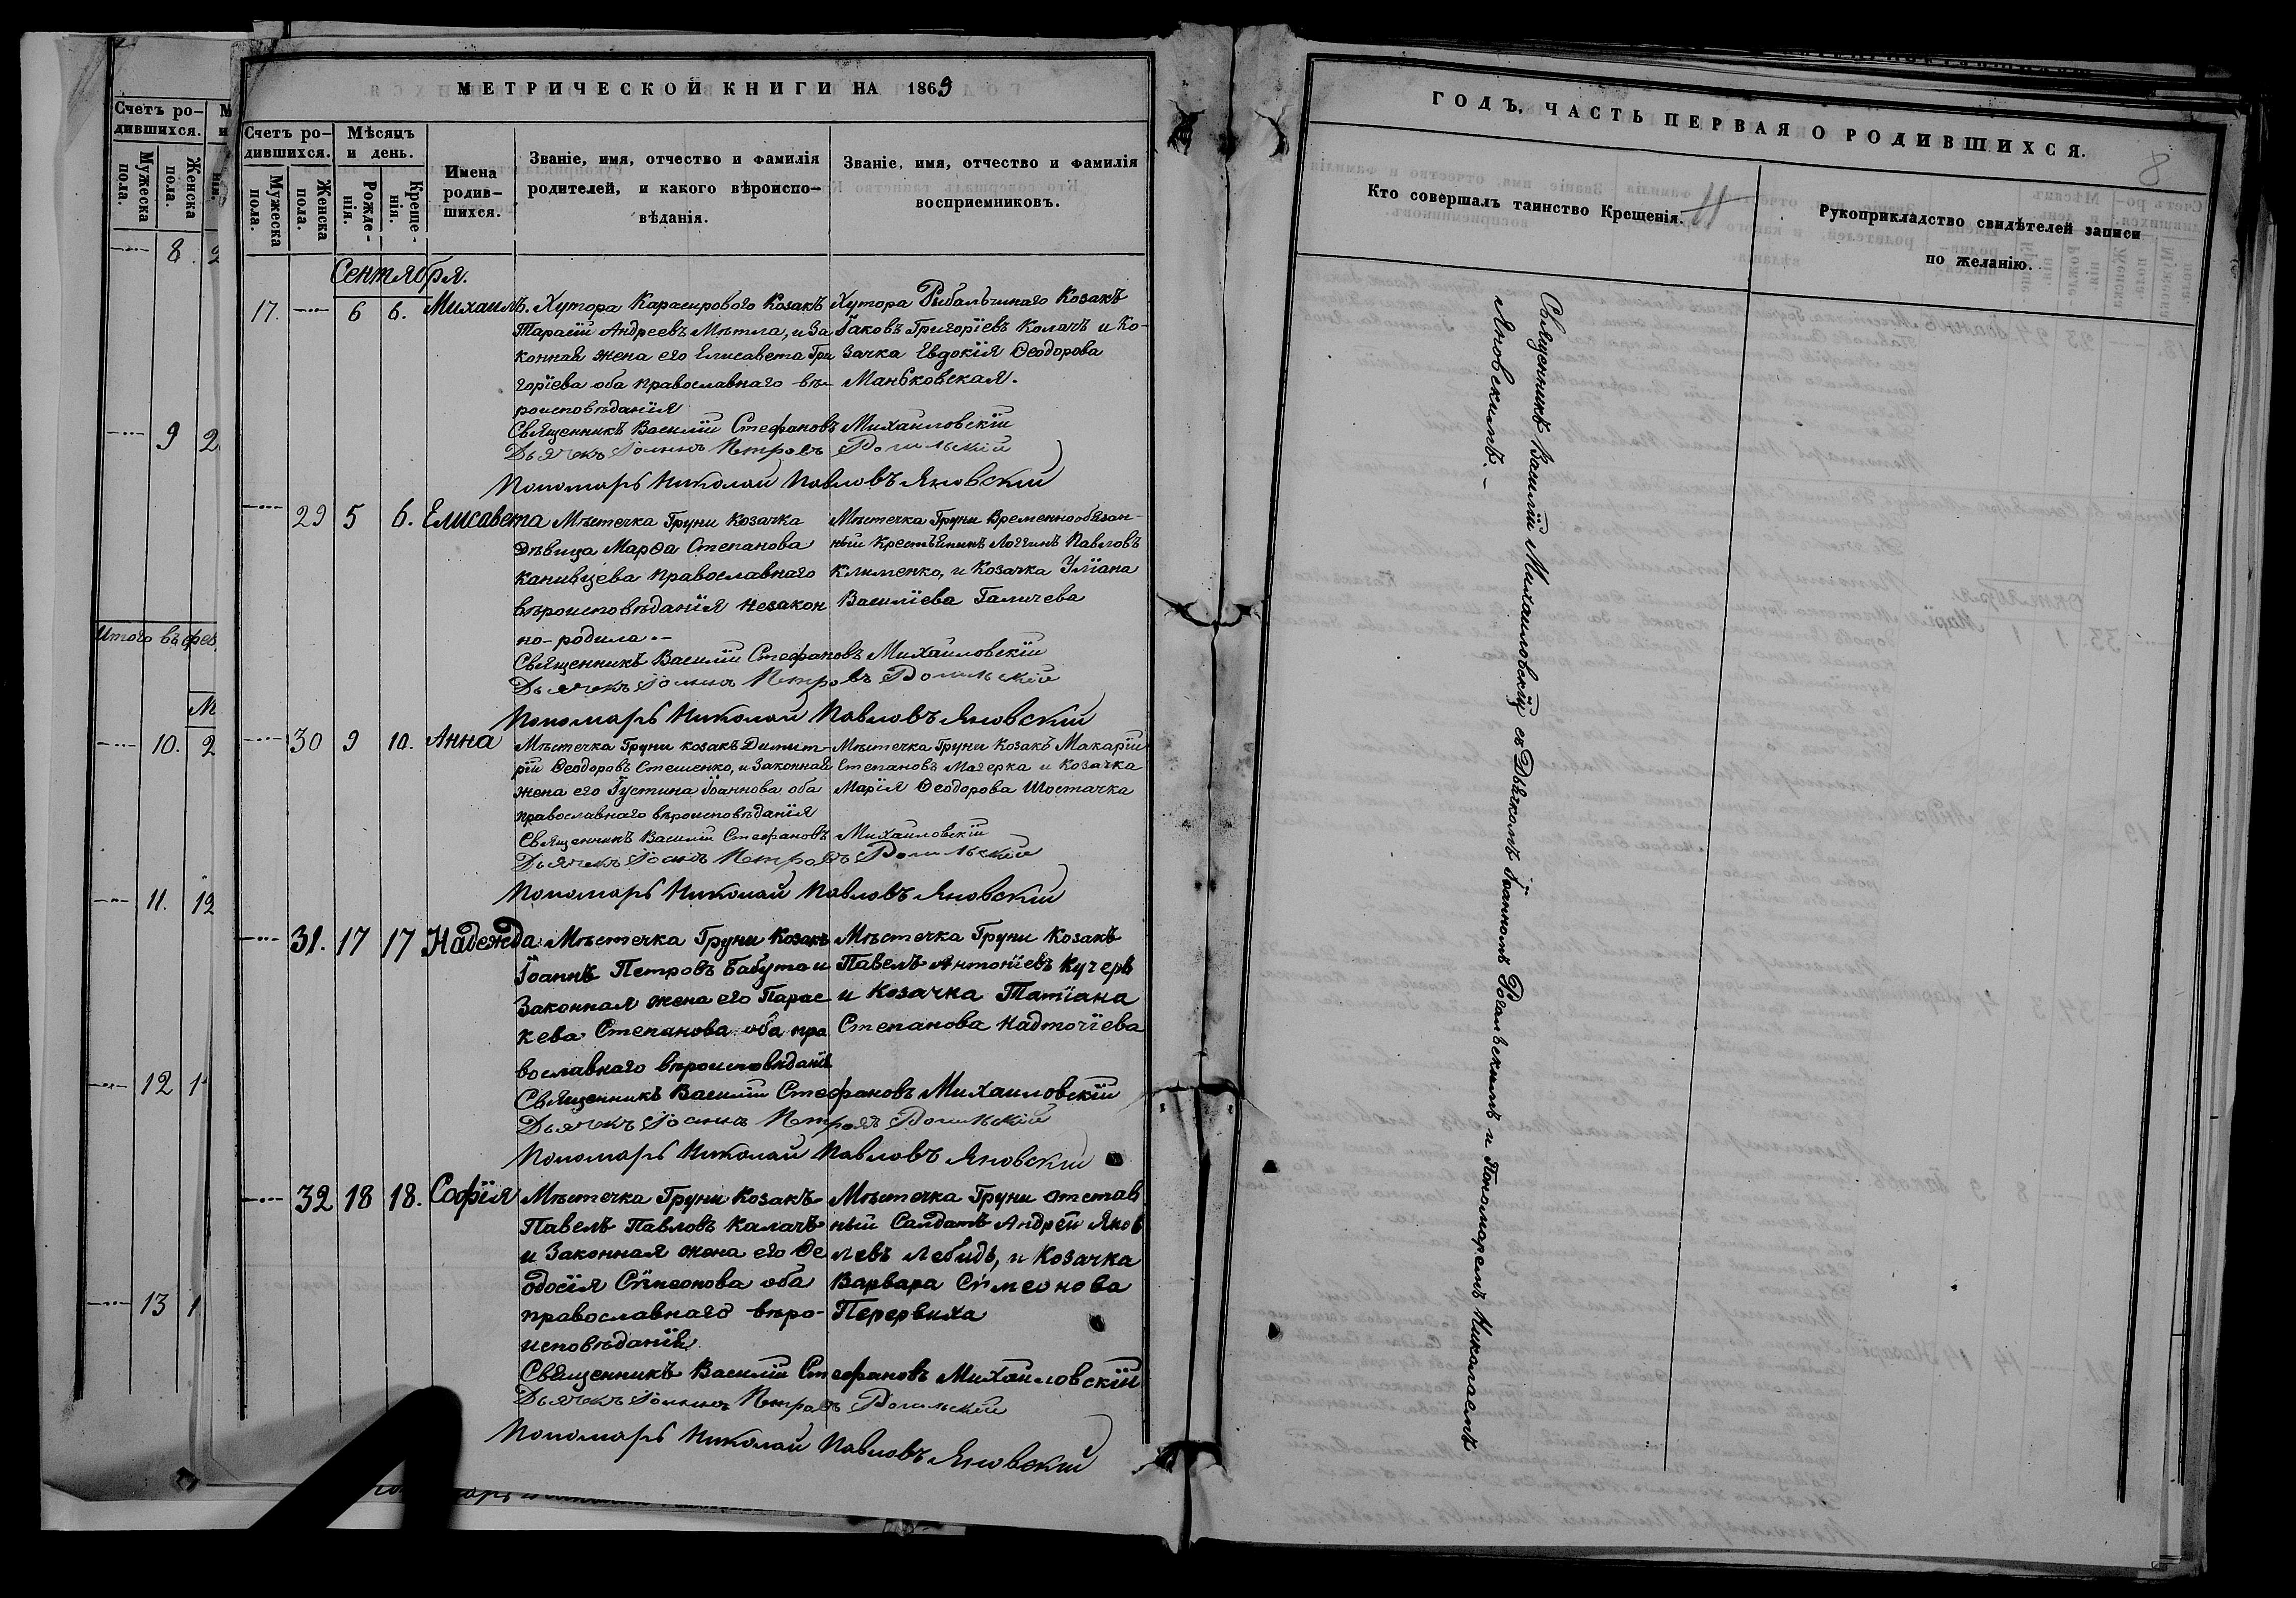 Счетъ ро-
дившихся.
Мужеска пола.
Женска пола.
8.
9
Итого въ фев.
10.
11.
12
13
МЕТРИЧЕСКОЙ КНИГИ НА 1869
Счетъ ро-
дившихся.
Мѣсяцъ
и день.
Мужеска пола.
Женска пола.
Рожде-
нія.
Креще-
нія.
Имена
родив-
шихся.
Званіе, имя, отчество и фамилія
родителей, и какого вѣроиспо-
вѣданія.
Званіе, имя, отчество и фамилія
восприемниковъ.
Сентября.
17. 6 6. Михаилъ.
Хутора Карасирового Козакъ
Тарасій Андреевъ Мѣтла, и За
конная жена его Елисавета Гри
горіева оба православнаго вѣ-
роисповѣданія
Хутора Рыбальчинаго Козакъ
Іаковъ Григоріевъ Колачъ и Ко-
зачка Евдокія Ѳеодорова
Маньковская.
Священникъ Василій Стефановъ Михаиловскій
Дьячекъ Іоаннъ Петровъ Рогальскій
Пономарь Николай Павловъ Яновскій
29 5 6. Елисавета
Мѣстечка Груни Козачка
дѣвица Марѳа Степанова
Канивцева православнаго
вѣроисповѣданія незакон
но-родила.-
Мѣстечка Груни Временнообязан-
ный крестьянинъ Логгинъ Павловъ
Клименко, и Козачка Уліана
Василіева Галичева
Священникъ Василій Стефановъ Михаиловскій
Дьячекъ Іоаннъ Петровъ Рогальскій
Пономарь Николай Павловъ Яновскій
30 9 10. Анна
Мѣстечка Груни козакъ Димит-
рій Ѳеодоровъ Стешенко, и Законная
жена его Іустина Іоаннова оба
православнаго вѣроисповѣданія
Мѣстечка Груни Козакъ Макарій
Степановъ Магерка и Козачка
Марія Ѳеодорова Шостачка
Священникъ Василій Стефановъ Михаиловскій
Дьячекъ Іоаннъ Петровъ Рогальскій
Пономарь Николай Павловъ Яновскій
31. 17 17 Надежда
Мѣстечка Груни Козакъ
Іоаннъ Петровъ Бабута и
Законная жена его Парас
кева Степанова оба пра
вославнаго вѣроисповѣданія
Мѣстечка Груни Козакъ
Павелъ Антоніевъ Кучеръ
и Козачка Татіана
Степанова Надточіева
Священникъ Василій Стефановъ Михаиловскій
Дьячекъ Іоаннъ Петровъ Рогальскій
Пономарь Николай Павловъ Яновскій
32 18 18. Софія
Мѣстечка Груни Козакъ
Павелъ Павловъ Калачъ
и Законная жена его Ѳе
одосія Сімеонова оба
православнаго вѣро-
исповѣданія
Мѣстечка Груни отстав
ный Салдатъ Андрей Яков
левъ Лебидь, и Козачка
Варвара Сімеонова
Перервиха
Священникъ Василій Стефановъ Михаиловскій
Дьячекъ Іоаннъ Петровъ Рогальскій
Пономарь Николай Павловъ Яновскій
ГОДЪ. ЧАСТЬ ПЕРВАЯ О РОДИВШИХСЯ.
8
Кто совершалъ таинство Крещенія.
Рукоприкладство свидѣтелей записи
по желанію.
Священникъ Василій Михаиловскій съ Дьячкомъ Іоанномъ Рогальскимъ и Пономаремъ Николаемъ
Яновскимъ.-